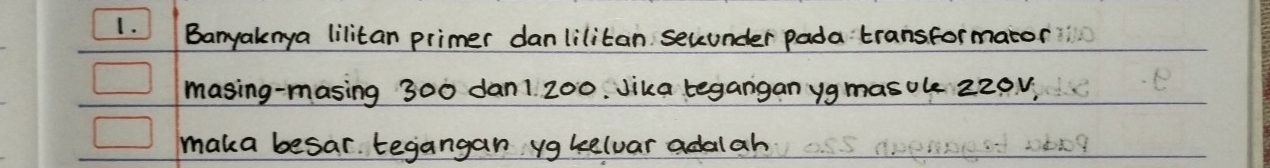 1. Banyaknya lilitan primer dan lilitan sekunder pada transformator
masing-masing 300 dan 1.200. Jika tegangan yg masuk 220V,
maka besar tegangan yg keluar adalah